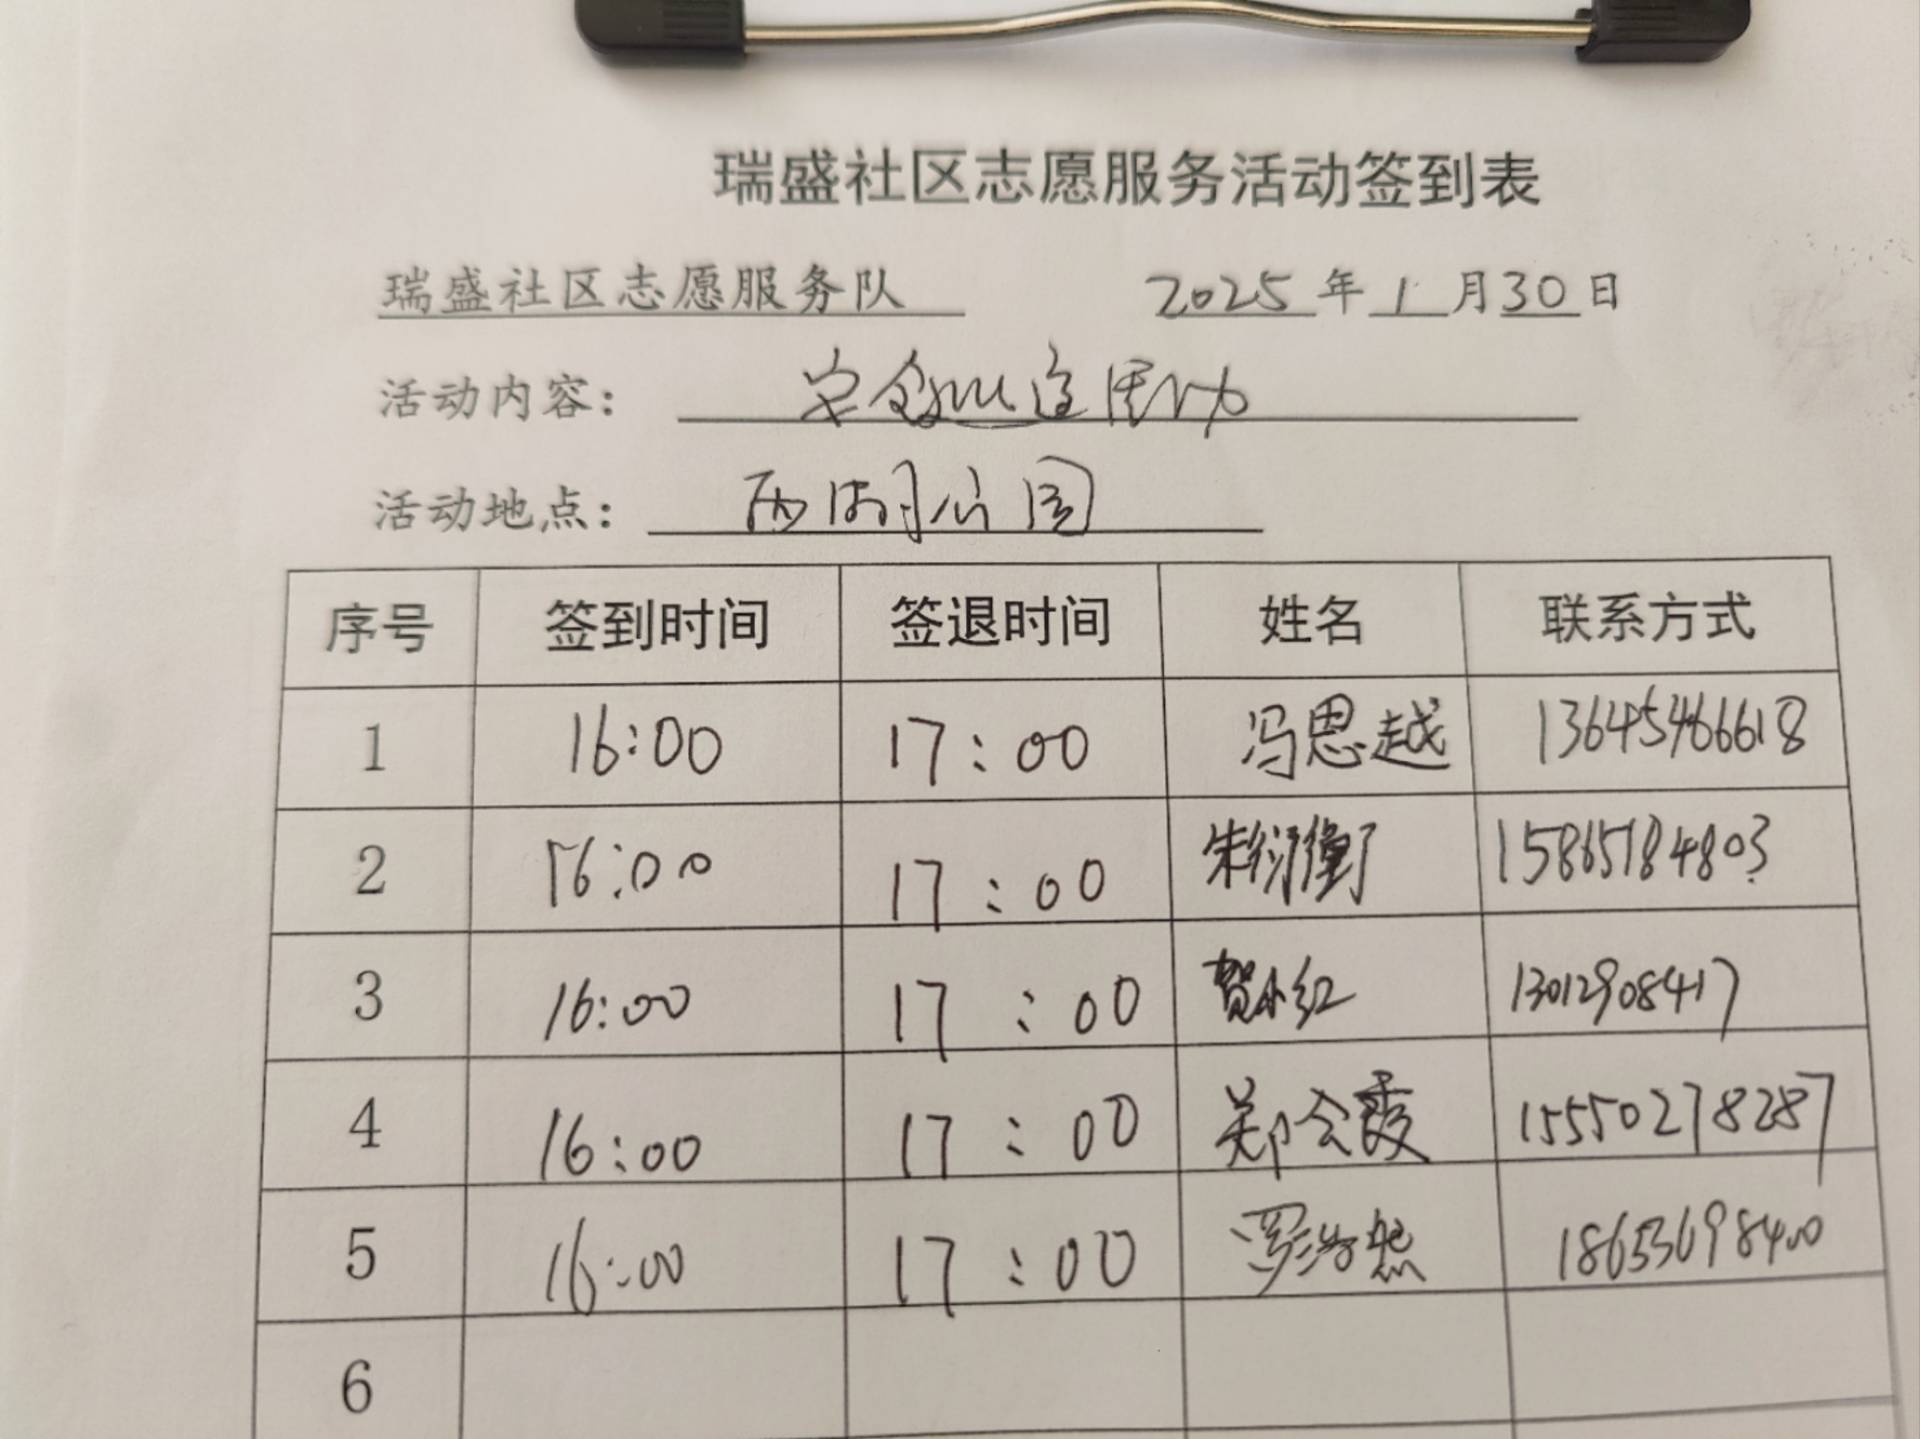 瑞盛社区志愿服务活动签到表
瑞盛社区志愿服务队 2025年1月30日
活动内容：安全
活动地点：西湖公园
序号 签到时间 签退时间 姓名 联系方式
1 16:00 17:00 冯思越 13645466618
2 16:00 17:00 朱衍衡 15865184803
3 16:00 17:00 贺小红 13012908417
4 16:00 17:00 郑会霞 15550278287
5 16:00 17:00 罗浩然 18653698400
6